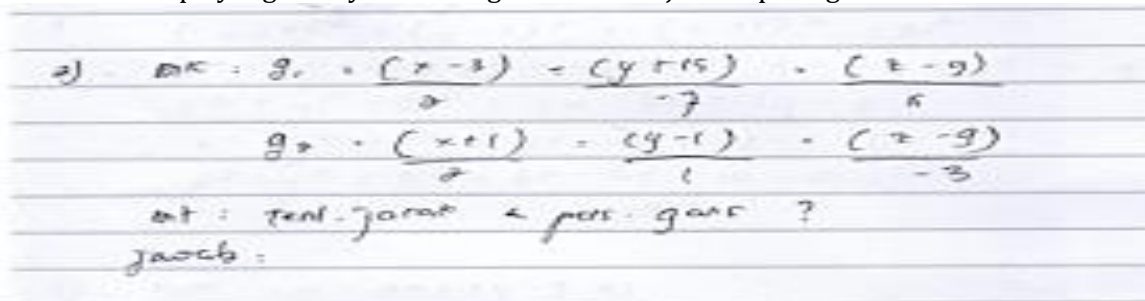 2) DIK : g₁ = (x - 3)/2 = (y + 15)/-7 = (z - 9)/5
g₂ = (x+1)/2 = (y-1)/1 = (z - 9)/-3
Dit : Tent. Jarak & pers. garis ?
Jawab :